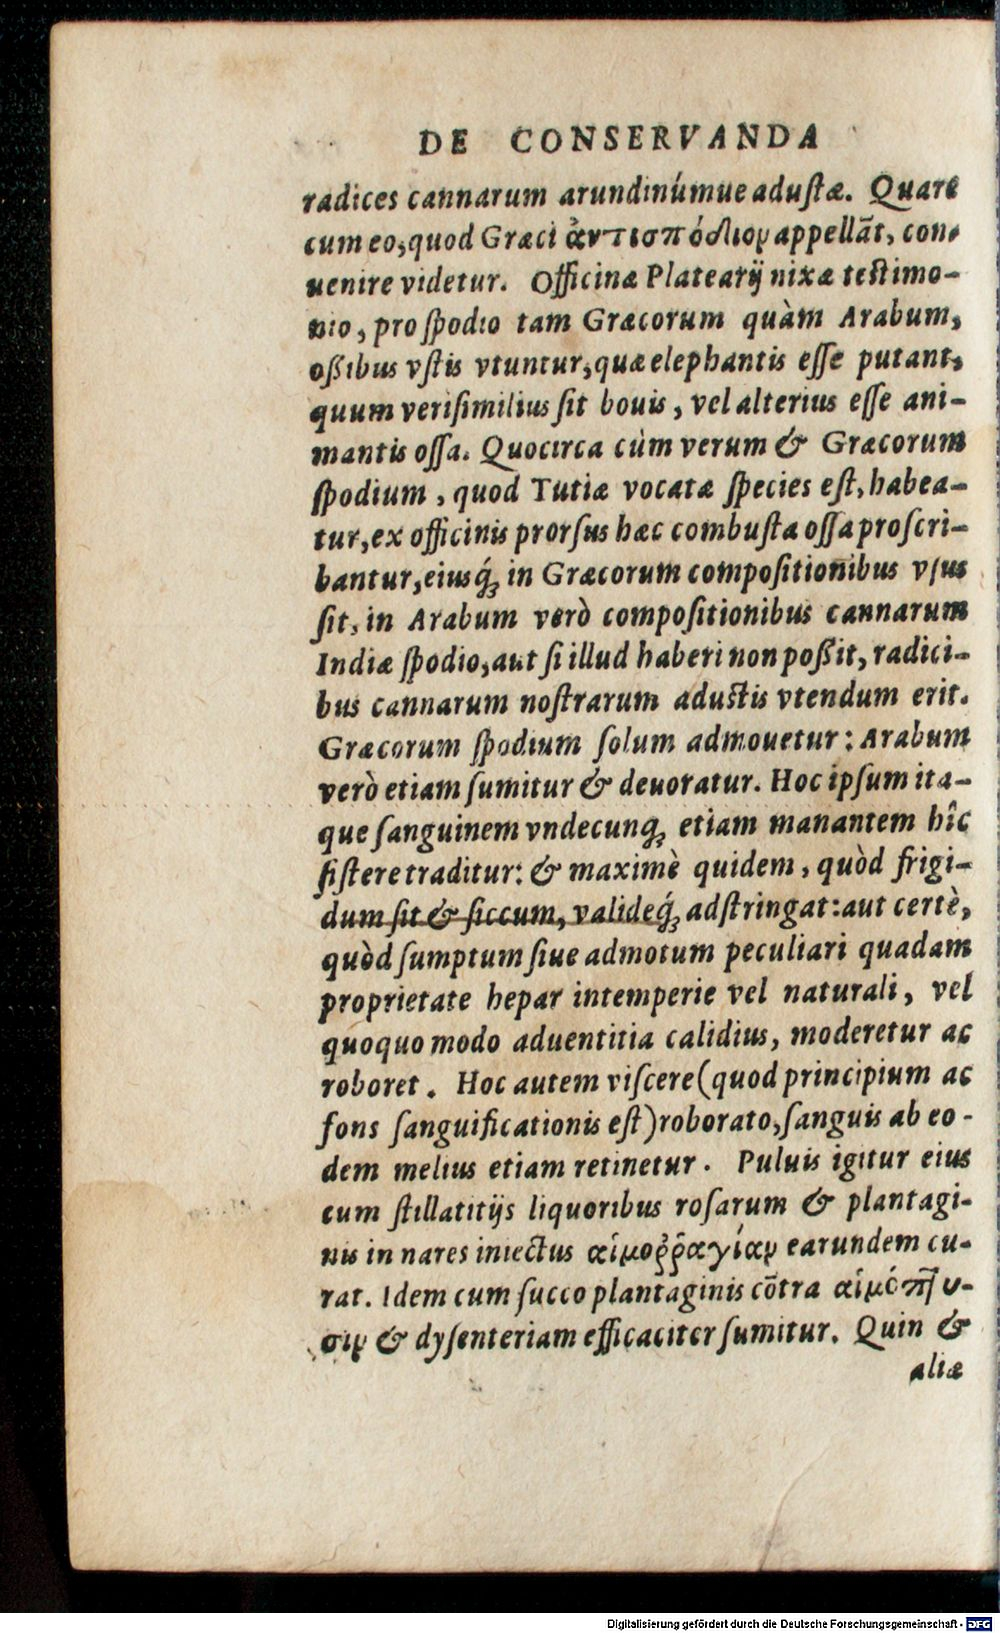 DE CONSERVANDA
radices cannarum arundinúmue adustæ. Quare
cum eo, quod Græci ἀντισπόδιον appellãt, con-
uenire videtur. Officinæ Platearij nixæ testimo-
nio, pro spodio tam Græcorum quàm Arabum,
oßibus vstis vtuntur, quæ elephantis esse putant,
quum verisimilius sit bouis, vel alterius esse ani-
mantis ossa. Quocirca cùm verum & Græcorum
spodium, quod Tutiæ vocatæ species est, habea-
tur, ex officinis prorsus hæc combusta ossa proscri-
bantur, eiusq́; in Græcorum compositionibus vsus
sit, in Arabum verò compositionibus cannarum
Indiæ spodio, aut si illud haberi non poßit, radici-
bus cannarum nostrarum adustis vtendum erit.
Græcorum spodium solum admouetur: Arabum
verò etiam sumitur & deuoratur. Hoc ipsum ita-
que sanguinem vndecunq; etiam manantem hîc
sistere traditur: & maximè quidem, quòd frigi-
dum sit & siccum, valideq́; adstringat: aut certè,
quòd sumptum siue admotum peculiari quadam
proprietate hepar intemperie vel naturali, vel
quoquo modo aduentitia calidius, moderetur ac
roboret. Hoc autem viscere (quod principium ac
fons sanguificationis est) roborato, sanguis ab eo-
dem melius etiam retinetur. Puluis igitur eius
cum stillatitijs liquoribus rosarum & plantagi-
nis in nares iniectus αἱμοῤῥαγίαν earundem cu-
rat. Idem cum succo plantaginis cõtra αἱμόπτυ-
σιν & dysenteriam efficaciter sumitur. Quin &
aliæ
Digitalisierung gefördert durch die Deutsche Forschungsgemeinschaft - DFG